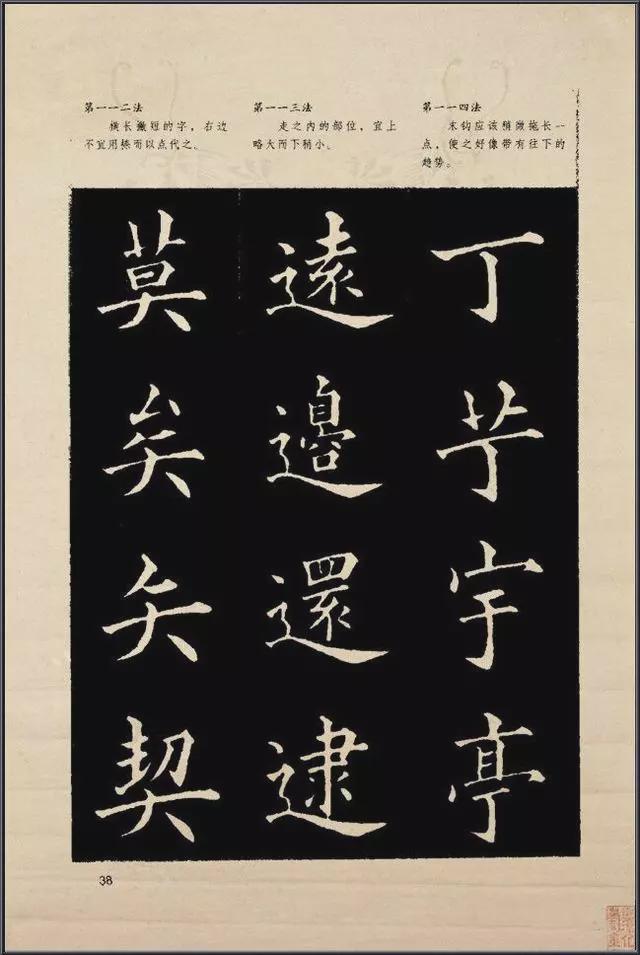 第一一二法
横长撇短的字，右边
不宜用捺而以点代之。
第一一三法
走之内的部位，宜上
略大而下稍小。
第一一四法
末钩应该稍微拖长一
点，使之好像带有往下的
趋势。
莫
矣
矢
契
遠
邊
還
逮
丁
艼
宇
亭
38